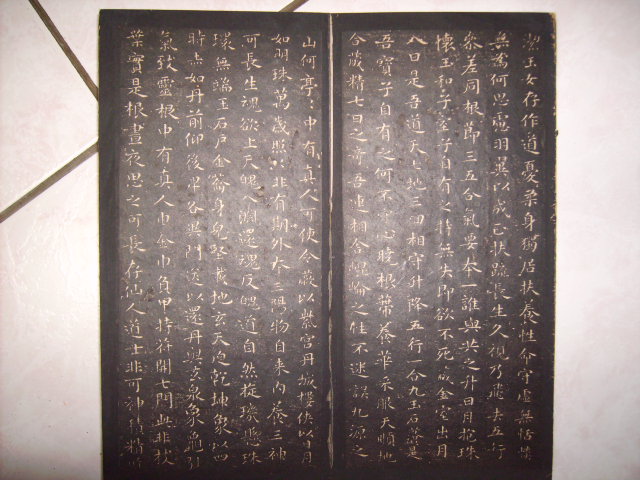 潔玉女存作道憂柔身獨居扶養性命守虛無恬惔
無為何思慮羽翼以成正扶疏長生久視乃飛去五行
參差同根節三五合氣要本一誰與共之升日月抱珠
懷玉和子室子自有之持無失即欲不死藏金室出月
入日是吾道天七地三回相守升降五行一合九玉石落落是
吾寶子自有之何不守心曉根蔕養華采服天順地
合藏精七日之奇吾連相合崑崙之性不迷誤九源之
山何亭〻中有真人可使令蔽以紫宮丹城樓俠以日月
如明珠萬歲照〻非有期外本三陽物自來內養三神
可長生魂欲上天魄入淵還魂反魄道自然旋璣懸珠
環無端玉石戶金籥身貞堅載地玄天迫乾坤象以四
時赤如丹前仰後卑各異門送以還丹與玄泉象龜引
氣致靈根中有真人巾金巾負甲持符開七門此非枝
葉實是根晝夜思之可長存仙人道士非可神積精所